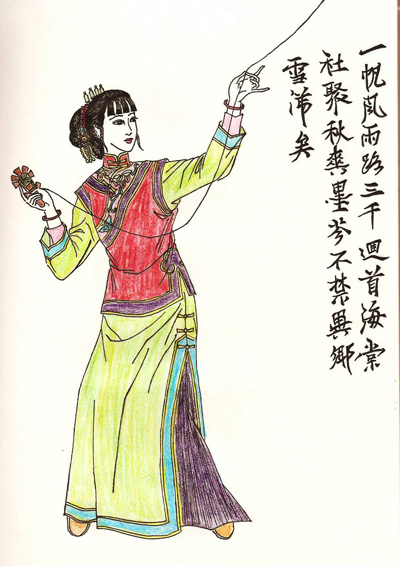 一帆风雨路三千迴首海棠
社聚秋爽墨芬不禁異鄉
雪涕矣